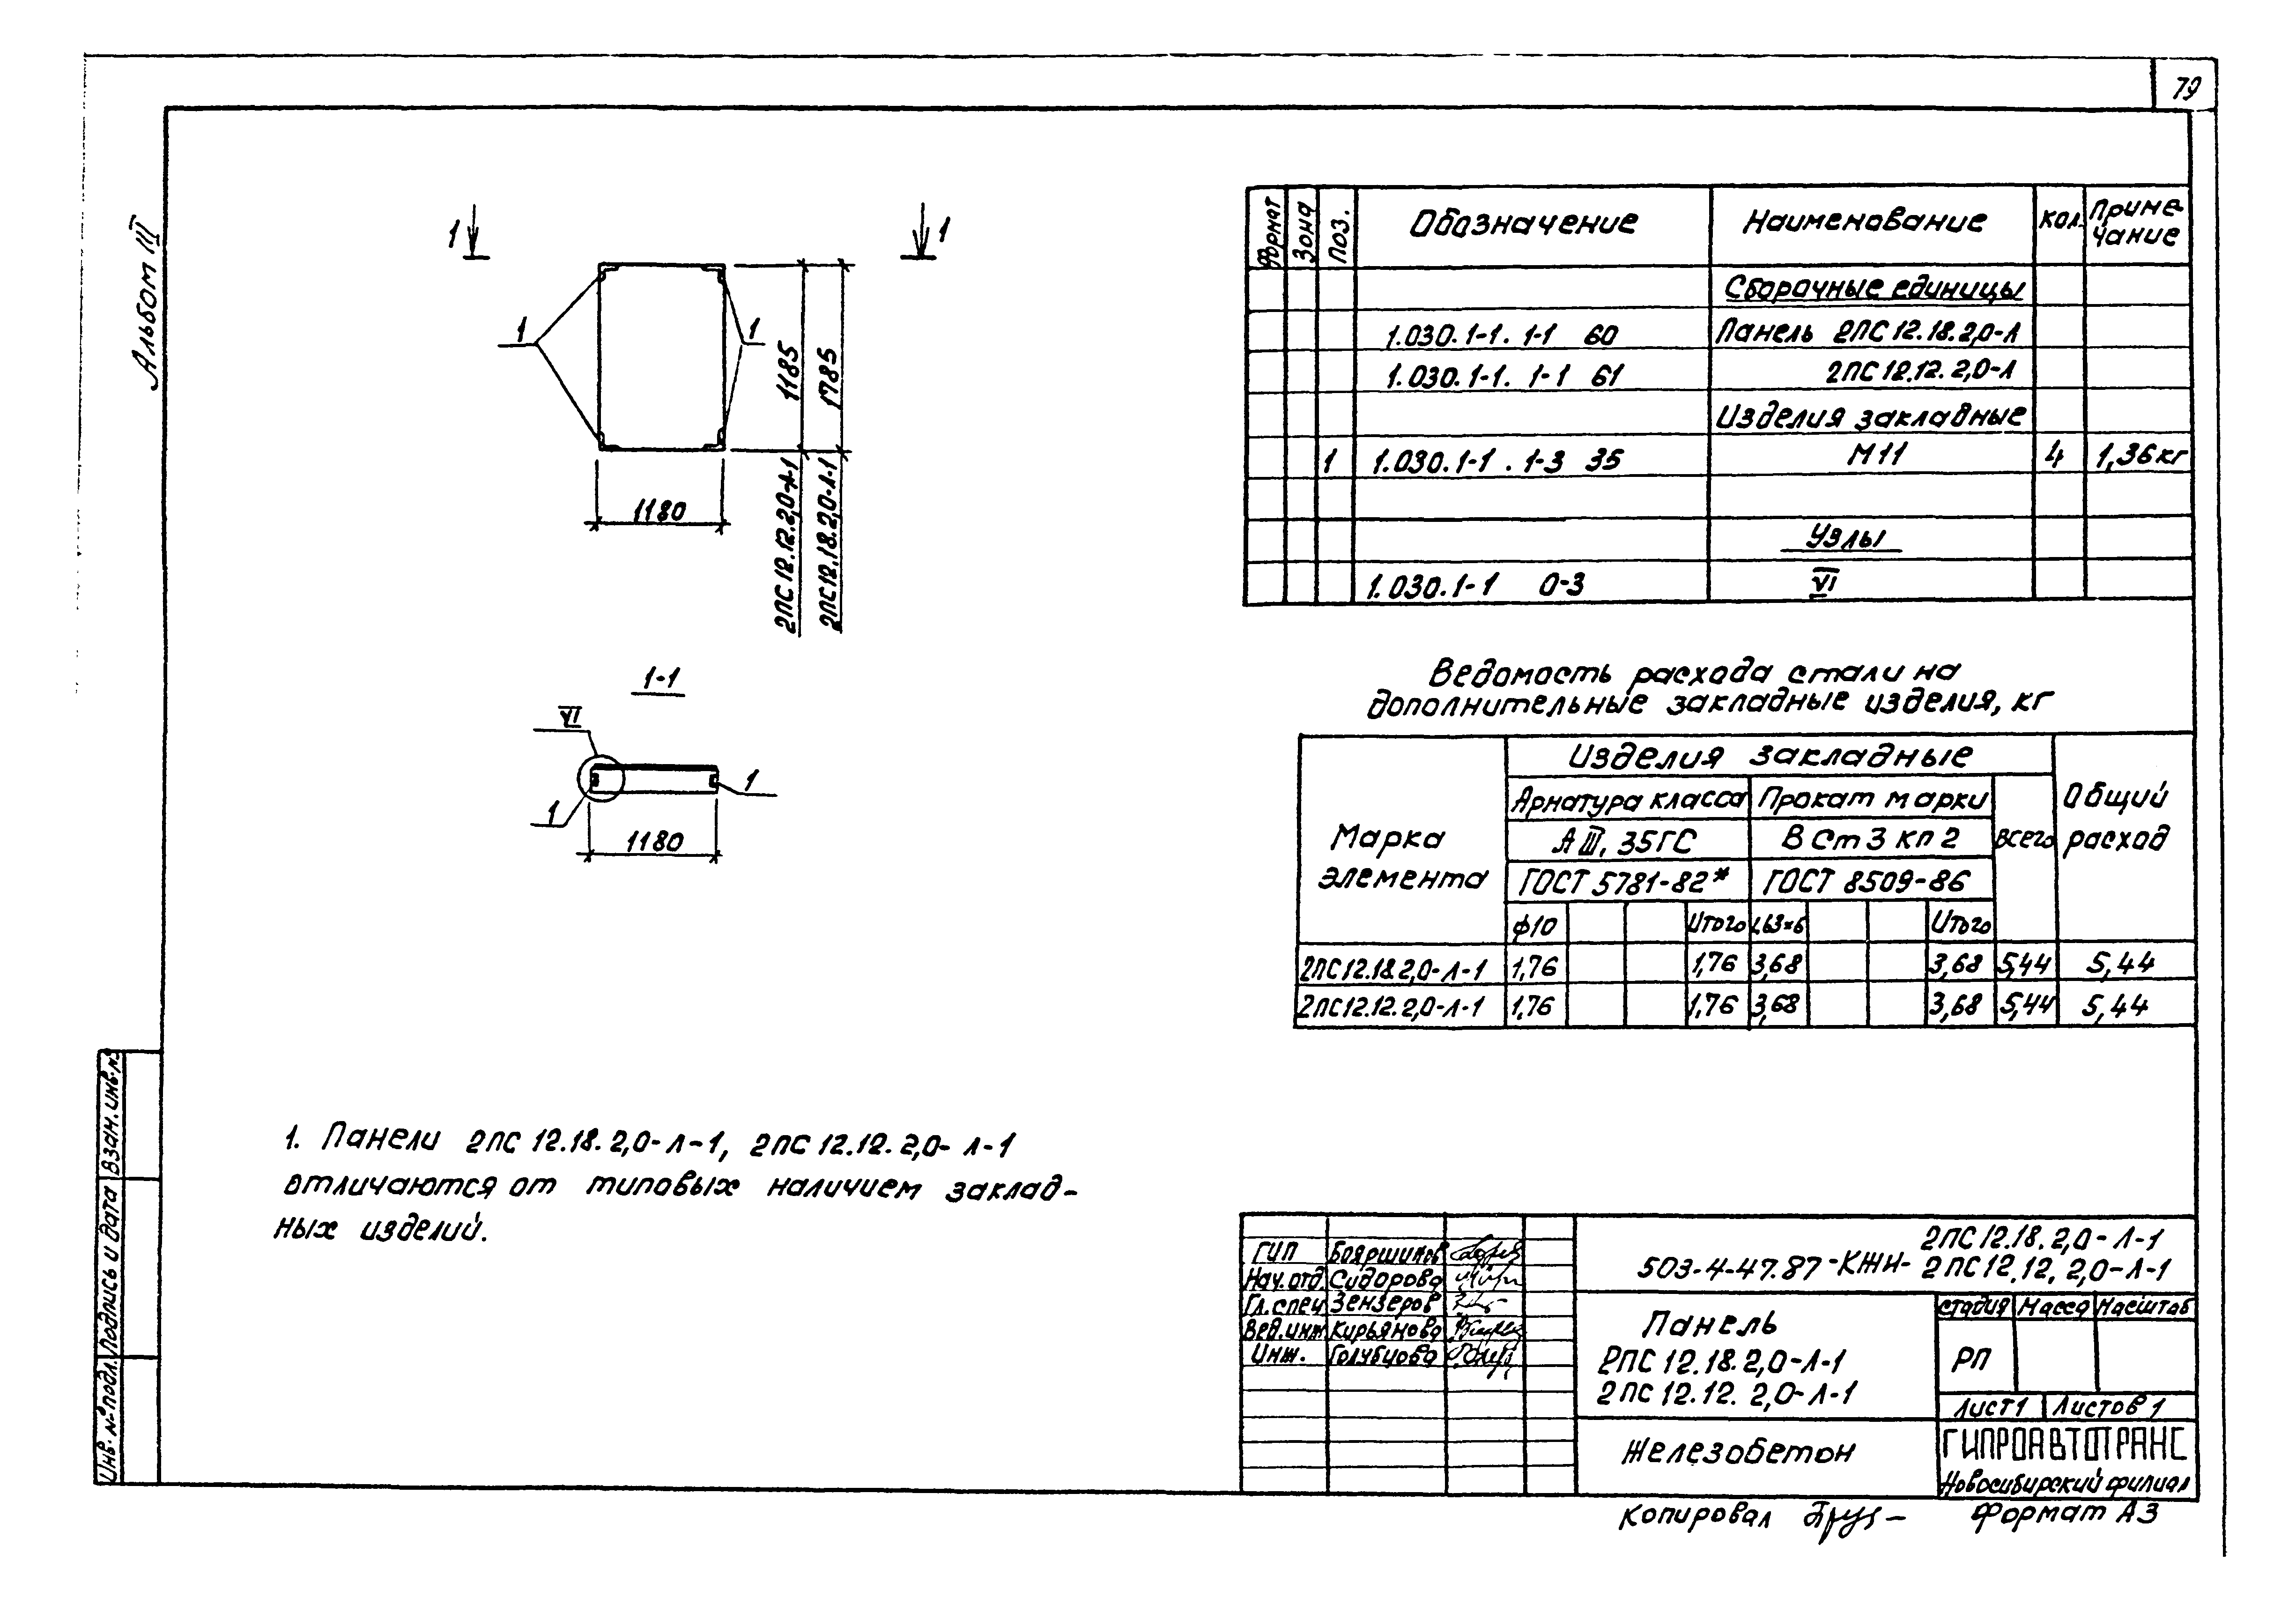 79
Альбом III
1 1
1 1
1185
1785
1180
2ПС 12.12.2,0-Л-1
2ПС12.18.2,0-Л-1
1-1
VI
1
1
1180
Формат Зона Поз. Обозначение Наименование Кол. Приме-
чание
Сборочные единицы
1.030.1-1. 1-1 60 Панель 2ПС 12.18.2,0-Л
1.030.1-1. 1-1 61 2ПС 12.12.2,0-Л
Изделия закладные
1 1.030.1-1. 1-3 35 М11 4 1,36кг
Узлы
1.030.1-1 0-3 VI
Ведомость расхода стали на
дополнительные закладные изделия, кг
Марка элемента Изделия закладные Общий расход
Арматура класса Прокат марки Всего
А III, 35ГС ВСт3кп2
ГОСТ 5781-82* ГОСТ 8509-86
ф10 Итого L63×6 Итого
2ПС12.18.2,0-Л-1 1,76 1,76 3,68 3,68 5,44 5,44
2ПС12.12.2,0-Л-1 1,76 1,76 3,68 3,68 5,44 5,44
1. Панели 2ПС 12.18.2,0-Л-1, 2ПС 12.12.2,0-Л-1
отличаются от типовых наличием заклад-
ных изделий.
Взам. инв. №
Подпись и дата
Инв. № подл.
ГИП Бояршинов
Нач.отд. Сидорова
Гл.спец Зензеров
Вед.инж Кирьянова
Инж. Голубцова
2ПС12.18.2,0-Л-1
503-4-47.87-КЖИ-2ПС12.12.2,0-Л-1
Панель
2ПС 12.18.2,0-Л-1
2ПС 12.12.2,0-Л-1
Стадия Масса Масштаб
РП
Лист 1 Листов 1
Железобетон
ГИПРОАВТОТРАНС
Новосибирский филиал
Копировал Формат А3